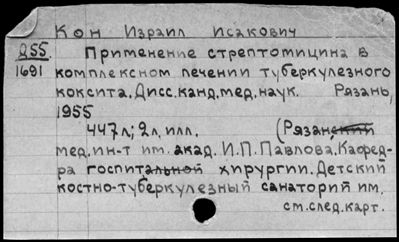 Кон Израил Исакович
Д55.
1691
Применение стрептомицина в
комплексном лечении туберкулезного
коксита. Дисс. канд. мед. наук. Рязань,
1955
447 л; 2 л. илл. (Рязанский
мед. ин-т им. акад. И.П. Павлова. Кафед-
ра госпитальной хирургии. Детский
костно-туберкулезный санаторий им.
см. след. карт.